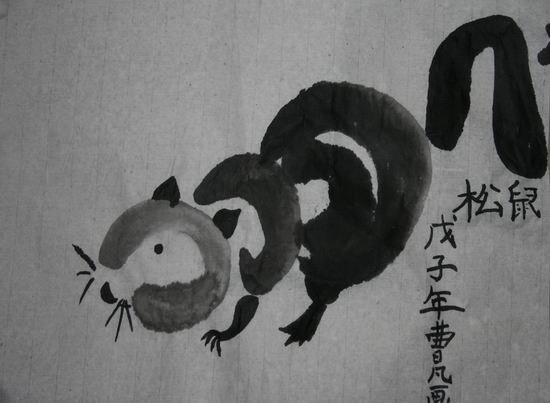 松鼠
戊子年曹凡画